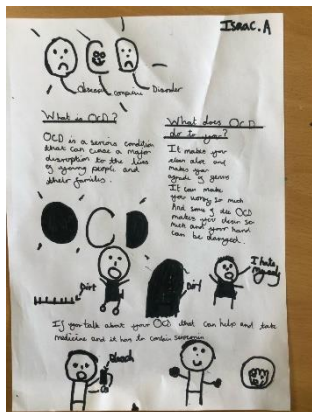 Isaac.A
Disorder
What is OCD?
OCD is a serious condition
that can cause a major
disruption to the lives
of young people and
their families.
What does OCD
do to you?
It makes you
clean alot and
makes you
of germs
It can make
you worry so much
And some of dee OCD
makes you clean so
much and your hand
can be damaged.
OCD
Dirt
Dirt
I hate
If you talk about your OCD that can help and take
medicine and it has to contain serotonin
Bleach